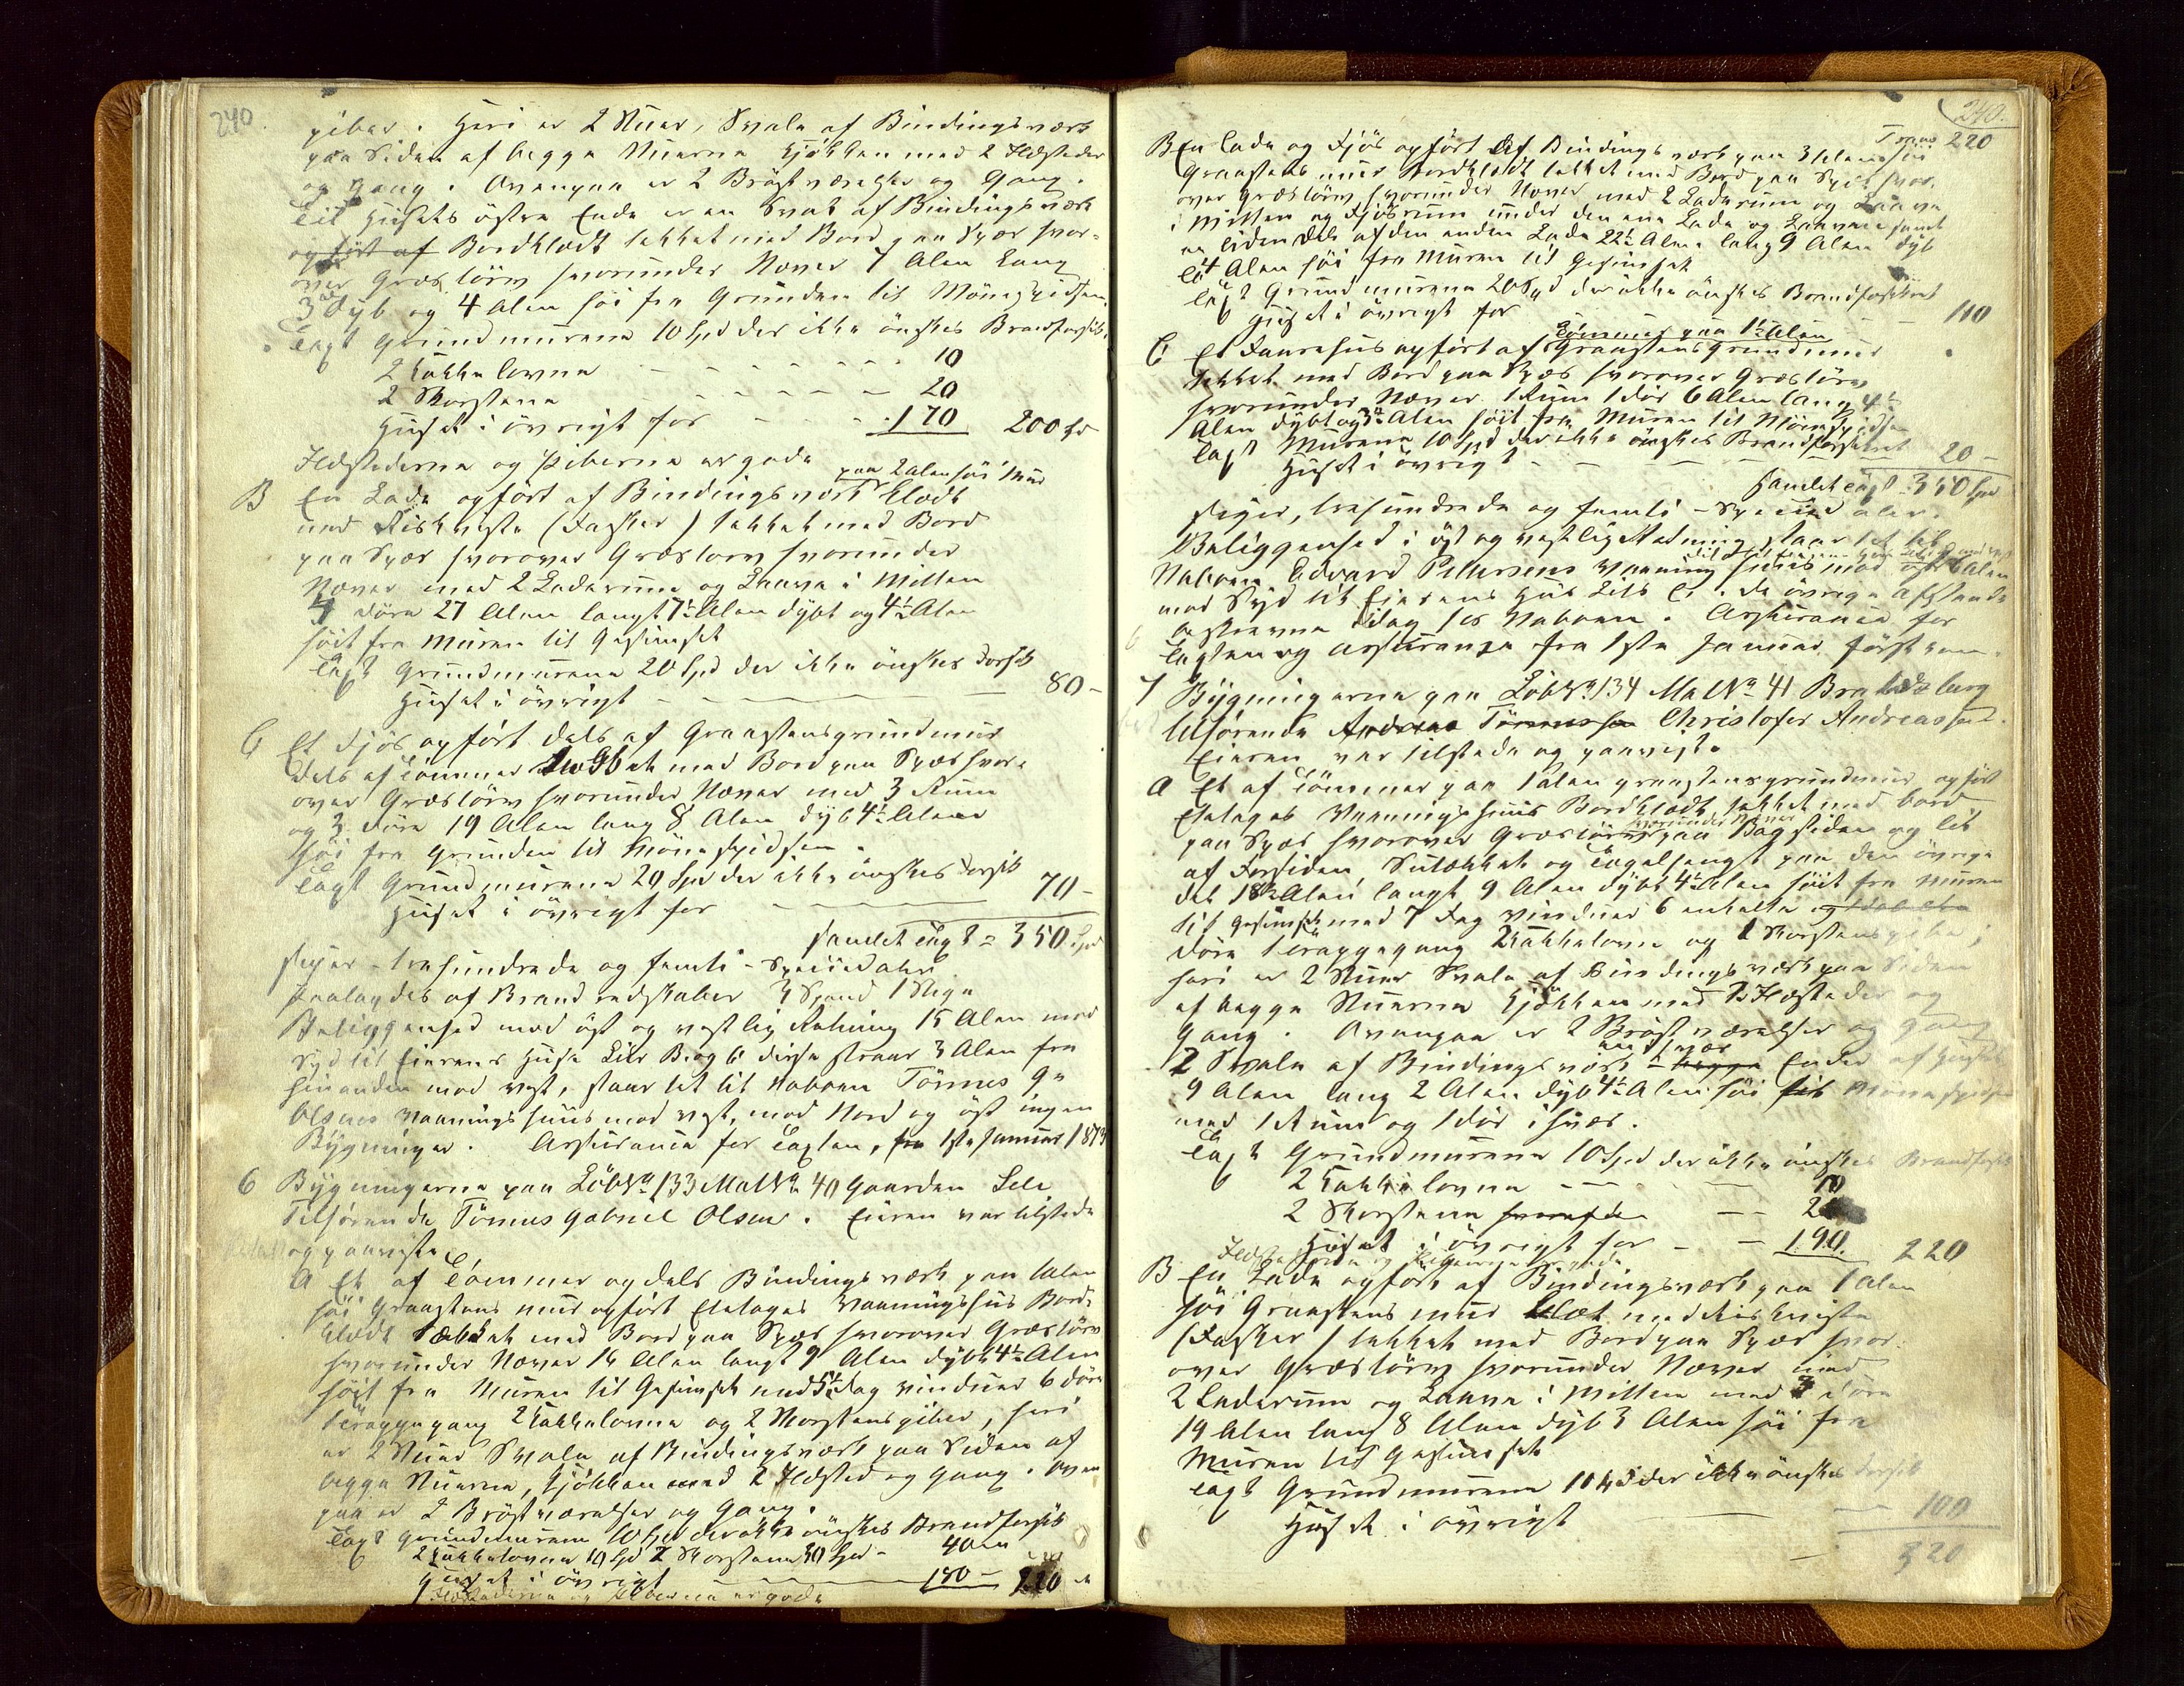 240
piber. Heri er 2 Stuer, Svale af Bindingsværk
paa Siden af begge Stuerne Kjøkken med 2 Ildsteder
og Gang. Ovenpaa er 2 Bröstværelser og Gang.
Til Husets östre Ende er en Sval af Bindingsværk
opfört af Bordklædt tækket med Bord paa Spær hvor-
over Græstörv hvorunder Næver 7 Alen Lang
3 dyb og 4 Alen höi fra Grunden til Mönespidsen.
Taxt Grundmurene 10 Spd der ikke önskes Brandforsik.
2 Kakkelovne - - - 10
2 Skorstene - - - 20
Huset i övrigt for - - - 170 200
Ildstederne og Piberne er gode
paa 2 Alen höi Mur
B En Lade opfört af Bindingsværk Klædt
med Riskviste (Fasker) tækket med Bord
paa Spær hvorover Græstorv hvorunder
Næver med 2 Laderum og Laave i Midten
4 Döre 27 Alen langt 7½ Alen dybt og 4½ Alen
höit fra Muren til Gesimset
Taxt Grundmurene 20 Spd der ikke önskes Forsik
Huset i övrigt - - - 80 -
C Et Fjös opfört dels af Graastensgrundmur
dels af Tömmer tækket med Bord paa Spær hvor-
over Græstörv hvorunder Næver med 3 Rum
og 3 Döre 19 Alen lang 8 Alen dyb 4½ Alen
höi fra Grunden til Mönespidsen.
Taxt Grundmurene 20 Spd der ikke önskes Forsik
Huset i övrigt for - - - 70 -
Samlet Taxt = 350 Spd
siger - trehundrede og femti - Speciedaler
Paalagdes af Brandredskaber 3 Spand 1 Stige
Beliggenhed med öst og vestlig Retning 15 Alen mod
Syd til Eierens Huse Litr B og C disse staar 3 Alen fra
hinanden mod vest, staar tæt til Naboen Tönnes G.
Olsens Vaaningshuus mod vest, mod Nord og öst ingen
Bygninger. Assurance for Taxten, fra 1ste Januar 1873
6 Bygningerne paa LöbNo 133 MatNo 40 Gaarden Sele
Tilhörende Tönnes Gabriel Olsen. Eieren var tilstede
og paaviste
A Et af Tömmer og dels Bindingsværk paa 1 Alen
höi Graastens mur opfört Etetages Vaaningshus Bord-
klædt tækket med Bord paa Spær hvorover Græstörv
hvorunder Næver 16 Alen langt 9 Alen dybt 4½ Alen
höit fra Muren til Gesimset med 5½ Fag Vinduer 6 Döre
1 Trappegang 2 Kakkelovne og 2 Skorstenspiber, heri
er 2 Stuer Svale af Bindingsværk paa Siden af
begge Stuerne, Kjökken med 2 Ildsted og Gang. Oven
paa er 2 Bröstværelser og Gang.
Taxt Grundmurene 10 Spd der ikke önskes Brandforsik
2 Kakkelovne 10 Spd 2 Skorstene 30 Spd - 40
Huset i övrigt - - - 180 - 220
Ildstederne og Piberne er gode
240.
Trans 220
B En Lade og Fjös opfört af Bindingsværk paa 3 Alen höi
Graastens mur Bordklædt tækket med Bord paa Spær hvor-
over Græstörv hvorunder Næver med 2 Laderum og Laave
i Midten og Fjösrum under den ene Lade og Laaven samt
en liden Del af den anden Lade 22½ Alen lang 9 Alen dyb
4 Alen höi fra Muren til Gesimset
Taxt Grundmurene 20 Spd der ikke önskes Brandforsikret
Huset i övrigt for - - 110
Tömmer paa 1½ Alen
C Et Faarehus opfört af Graastensgrundmur
tækket med Bord paa Spær hvorover Græstörv
hvorunder Næver 1 Rum 1 Dör 6 Alen lang 4½
Alen dybt og 3½ Alen höit fra Muren til Mönespidsen
Taxt Murene 10 Spd der ikke önskes Brandforsikret
Huset i övrigt - - - 20 -
Samlet Taxt 350 Spd
siger, trehundrede og femti - Speciedaler.
Beliggenhed i öst og vestlig Retning staar tæt til
Naboen Edvard Pettersens Vaaning huus mod
mod Syd til Eierens Hus Litr C. de övrige Afstande
beskrevne idag hos Naboen. Assurance for
Taxten og Assurance fra 1ste Januar förstkom.
7 Bygningerne paa LöbNo 134 MatNo 41
tilhörende Andreas Tönnessen Christofer Andreassen.
Eieren var tilstede og paaviste
A Et af Tömmer paa 1 Alen graastensgrundmur opfört
Etetages Vaaningshuus Bordklædt, tækket med bord
hvorunder Næver
paa Spær hvorover Græstörv paa Bagsiden og lit
af Forsiden, Sutækket og Tegelhængt paa den övrige
del 18½ Alen langt 9 Alen dybt 4½ Alen höit fra Muren
til Gesimset med 7 Fag Vinduer 6 enkelte og
Döre 1 Trappegang 2 Kakkelovne og 2 Skorstenspiber;
heri er 2 Stuer Svale af Bindingsværk paa Siden
af begge Stuerne Kjökken med 2 Ildsteder og
Gang. Ovenpaa er 2 Bröstværelser og Gang
2 Svale af Bindingsværk i begge Ender af Huset
9 Alen lang 2 Alen dyb 4½ Alen höi til Mönespidsen
med 1 Rum og 1 Dör i hver.
Taxt Grundmurene 10 Spd der ikke önskes Brandforsik
2 Kakkelovne - - - 10
2 Skorstene - - 20
Huset i övrigt for - - 190. 220
Ildstederne og Piberne er gode
B En Lade opfört af Bindingsværk paa 1 Alen
höi Graastens mur klædt med Riskviste
(Fasker) tækket med Bord paa Spær hvor-
over Græstörv hvorunder Næver med
2 Laderum og Laave i Midten med 3 Döre
19 Alen lang 8 Alen dyb 3 Alen höi fra
Muren til Gesimset
Taxt Grundmurene 10 Spd der ikke önskes Forsik
Huset i övrigt - - - 100
320